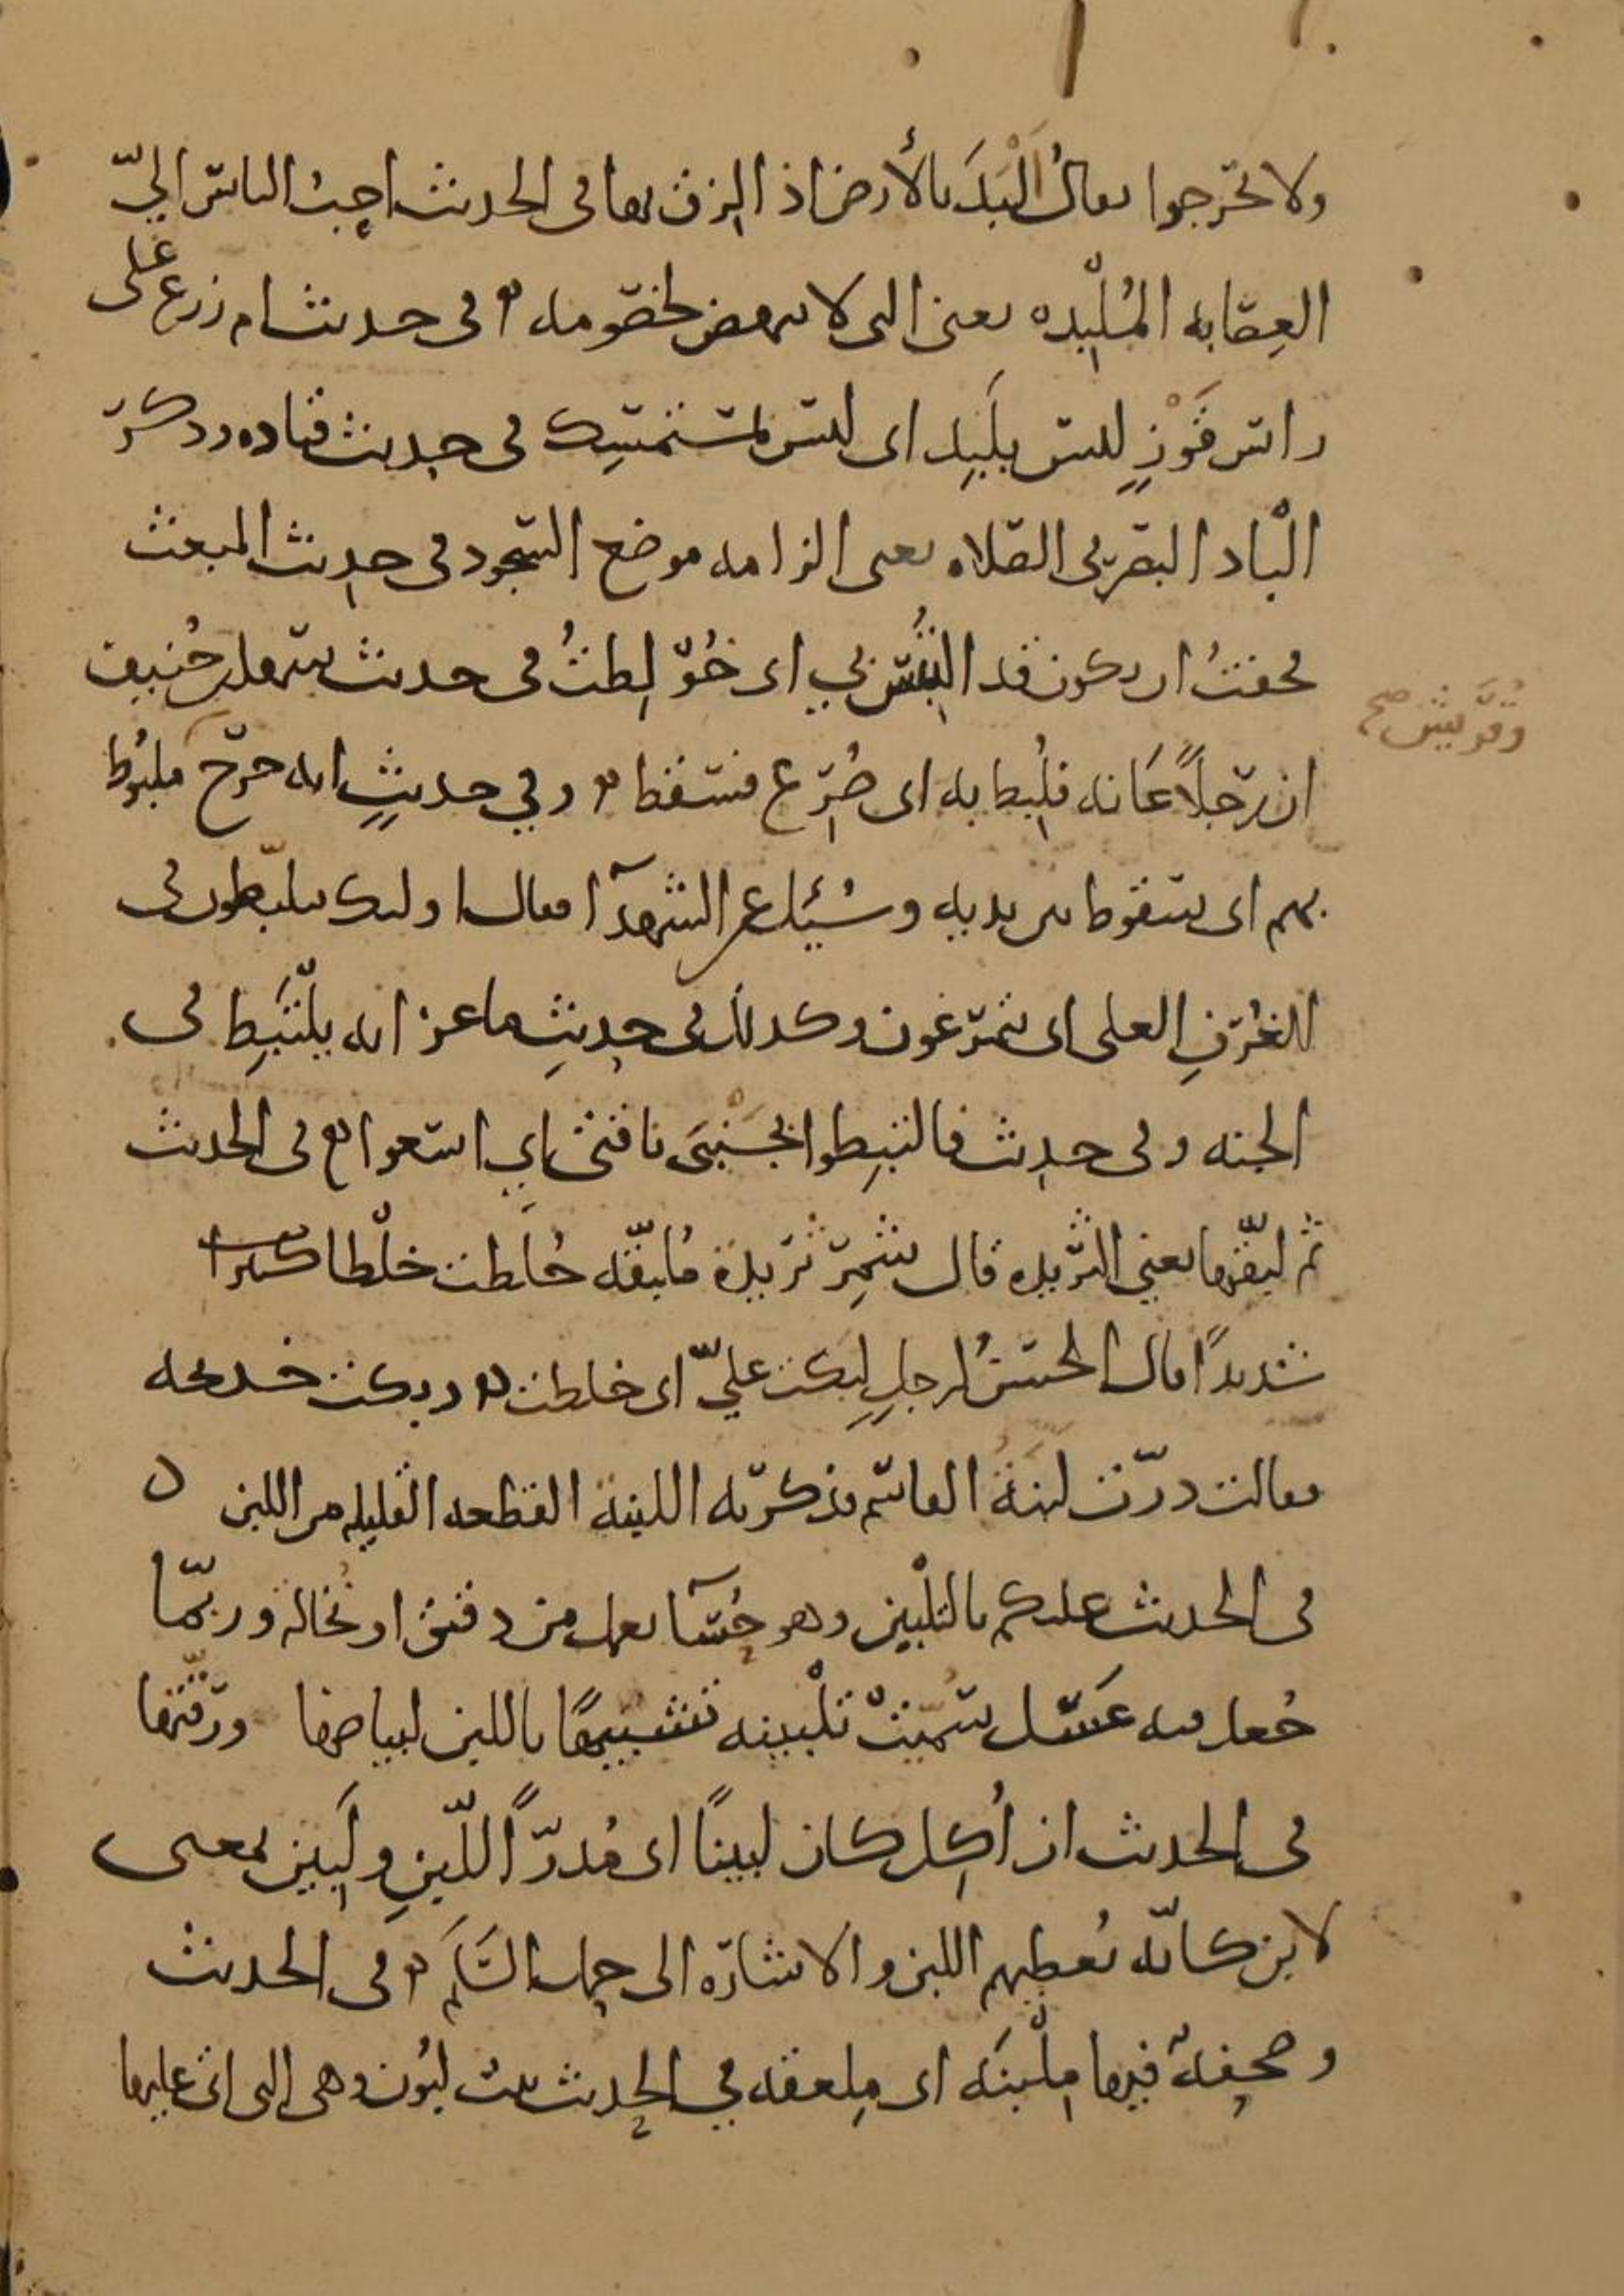 ولا تخرجوا يقال أَلْبَدَ بالأرض اذا لزق بها في الحديث احب الناس اليّ
العصابه المُلْبِده يعني التي لا تنهض لخصومه في حديث ام زرع على
راس قَوْزٍ ليس بلَبِدٍ اى ليس بمستمسك في حديث قتاده وذكر
الْباد البصر في الصلاه يعنى الزامه موضع السجود في حديث المبعث
فخفتُ ان يكون قد الْتُبِسَ بي اى خُوّلِطتُ في حديث سهل بن حُنيف
وقريش صح
ان رجلاً عَانه فلُبِط به اى صُرِع فسقط وفي حديثٍ انه خرج ملبُوط
بهم اى سقوط بين يديه وسُئل عن الشهدآ فقال اولىك يتلبّطون في
الغُرَفِ العلى اى يتمرغون وكذلك في حديثِ ماعز انه يلْتَبِط في
الجنه وفي حديث فالتبطوا بجَنْبَى ناقتى اي اسعوا في الحديث
ثم لبّقها يعني الثريده قال شَمِرٌ ثريدة مُلبّقه خُلطت خلْطا
شديدًا قال الحسنُ لرجلٍ لبَكت عليّ اى خلطت وبكت خديجه
فقالت درّت لبنَةُ القاسم فذكرته اللبنة القطعه القليله من اللبن ٥
في الحديث عليكم بالتلْبين وهو حُسَآ يعمل من دقيق او نُخالة وربّما
جُعل فيه عَسَل سُمّيتْ تلْبينه تشبيهًا باللبن لبياضها ورقّتها
في الحديث ان أُكِل كان لبينًا اى مُدرّاً للّبنِ ولَبِين بمعنى
لابن كانّه يُعطيهم اللبن والاشارة الى حمل السَّلَم في الحديث
وصحيفة فيها مِلْبَنَه اى مِلعقه في الحديث بنت لبُون وهي التي اتى عليها